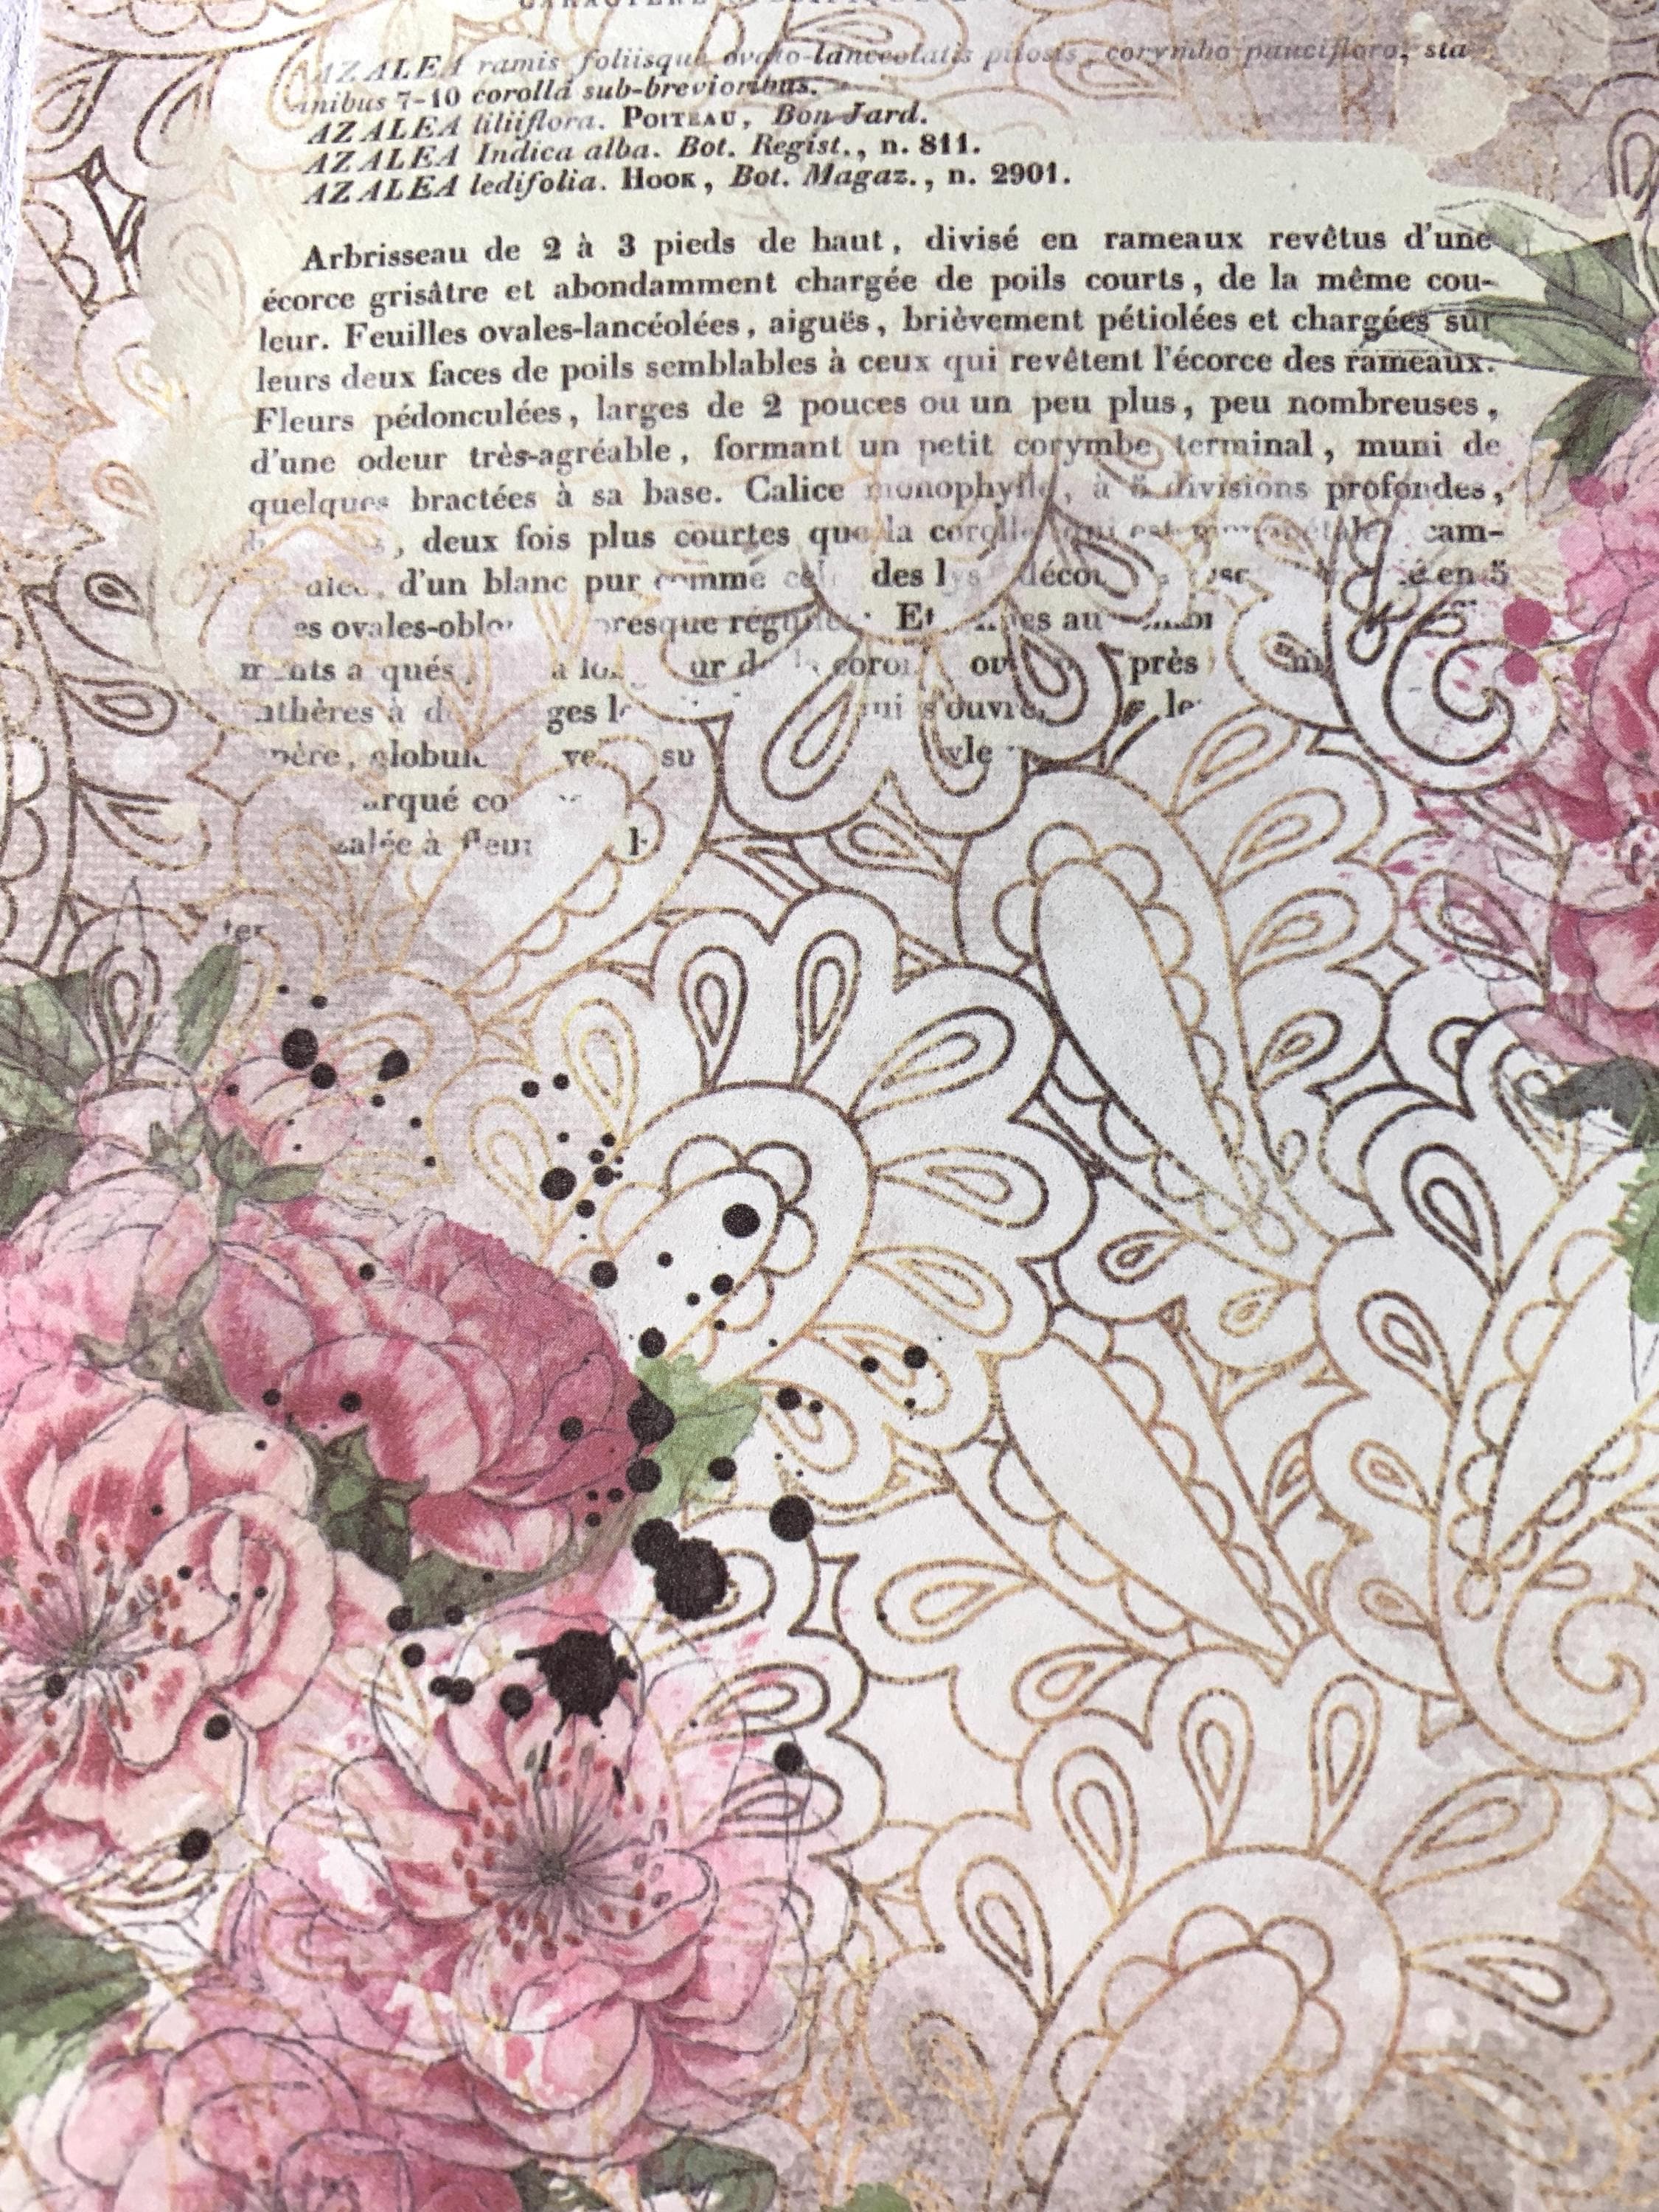 AZALEA ramis foliisque ovato-lanceolatis pilosis, corymbo paucifloro, sta-
minibus 7-10 corollâ sub-brevioribus.
AZALEA liliiflora. POITEAU, Bon Jard.
AZALEA Indica alba. Bot. Regist., n. 811.
AZALEA ledifolia. HOOK, Bot. Magaz., n. 2901.
Arbrisseau de 2 à 3 pieds de haut, divisé en rameaux revêtus d'une
écorce grisâtre et abondamment chargée de poils courts, de la même cou-
leur. Feuilles ovales-lancéolées, aiguës, brièvement pétiolées et chargées sur
leurs deux faces de poils semblables à ceux qui revêtent l'écorce des rameaux.
Fleurs pédonculées, larges de 2 pouces ou un peu plus, peu nombreuses,
d'une odeur très-agréable, formant un petit corymbe terminal, muni de
quelques bractées à sa base. Calice monophylle, à 5 divisions profondes,
, deux fois plus courtes que la corolle qui est monopétale, cam-
d'un blanc pur comme celui des lys en 5
es ovales-oblon presque régul Et au
a qués, près
anthères à d ges s'ouvre
père, globul ve su yle
arqué co
zalée à fleur